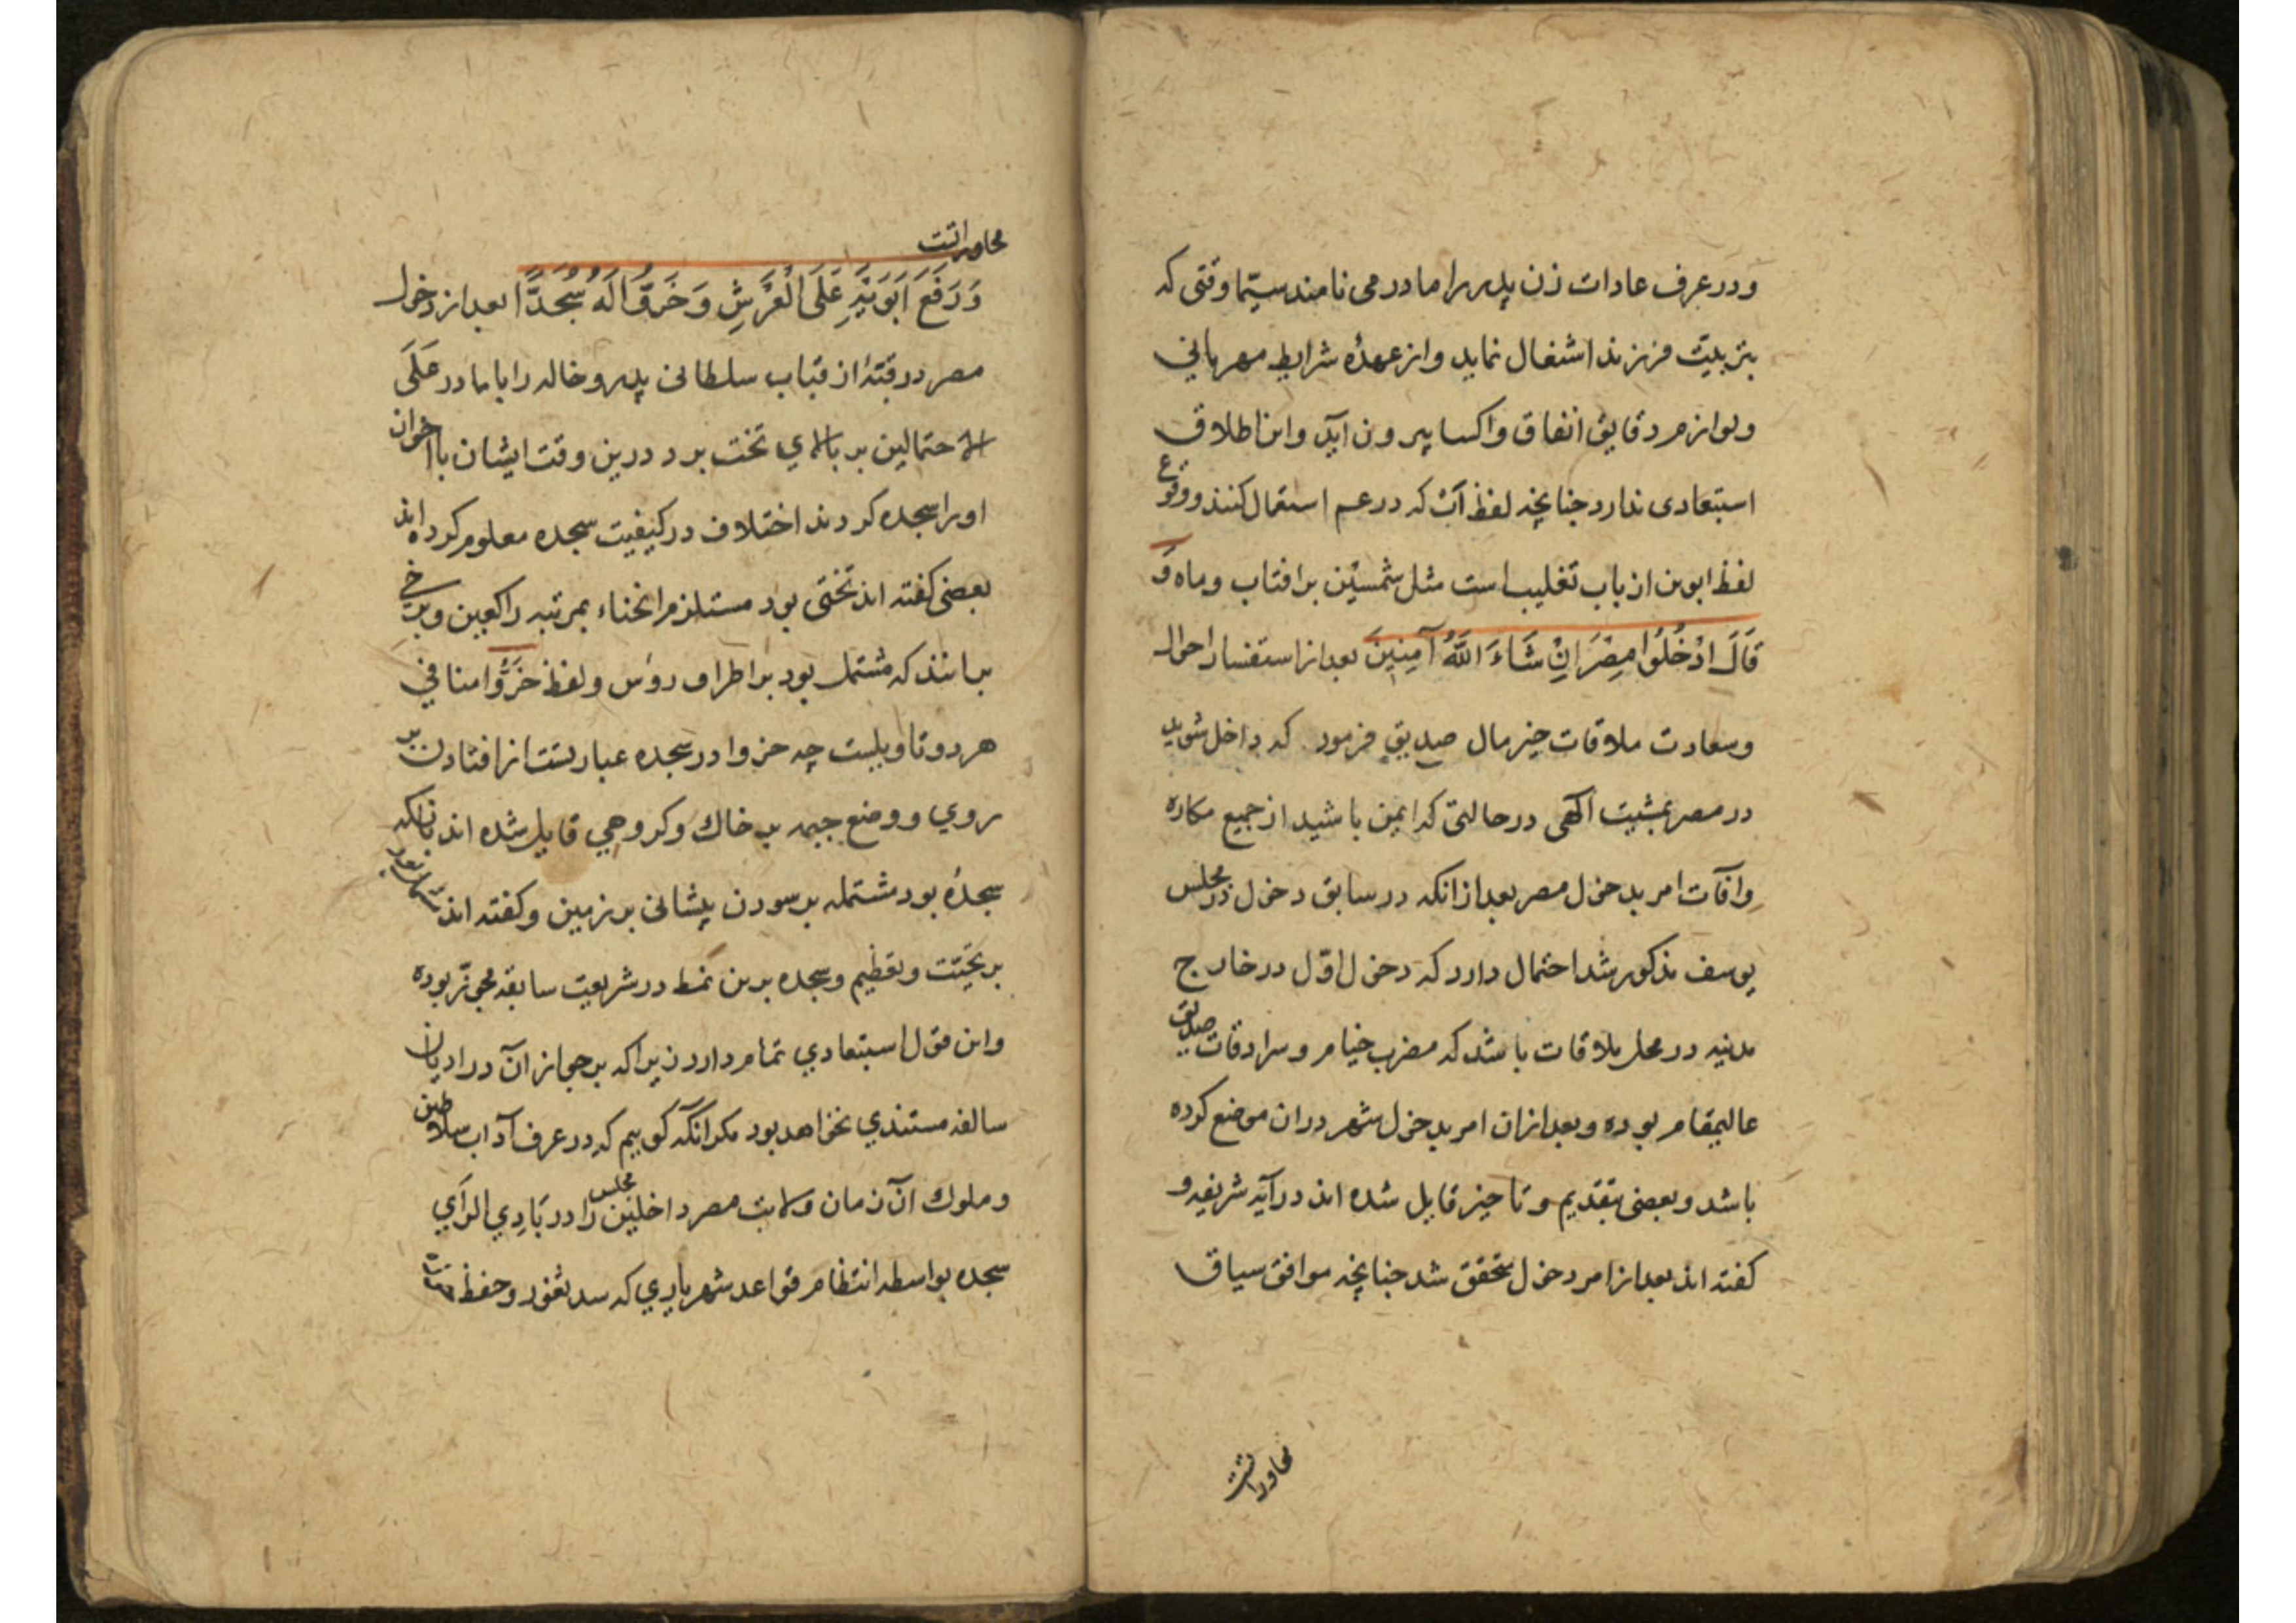 ودر عرف عادات زن پدر را مادر می نامند سیّما وقتی که
بتربیت فرزند اشتغال نماید واز عهدهٔ شرایط مهربانی
ولوازم دقایق انفاق واکسا بیرون آید واین اطلاق
استبعادی ندارد چنانچه لفظ اَبْ که در عم استعمال کنند ووقوع
لفظ ابوین از باب تغلیب است مثل شمسَیْن بر افتاب وماه وَ
قَالَ ادْخُلُوا مِصْرَ اِنْ شَاءَ اللَّهُ آمِنِینَ بعد از استفسار احوال
وسعادت ملاقات خیر مال صدیق فرمود که داخل شوید
در مصر بمشیت آلهی در حالتی که ایمن باشید از جمیع مکاره
وآفات امر بدخول مصر بعد از انکه در سابق دخول در مجلس
یوسف مذکور شد احتمال دارد که دخول اوّل در خارج
مدنیه در محل ملاقات باشد که مضرب خیام وسرادقات صدیق
عالیمقام بوده وبعد ازان امر بدخول شهر دران موضع کرده
باشد وبعضی بتقدیم وتاخیر قایل شده اند در آیه شریفه و
کفته اند بعد از امر دخول متحقق شد چنانچه موافق سیاق
محاوراتت
محاوراتت
وَرَفَعَ اَبَوَیْهِ عَلَی الْعَرْشِ وَخَرُّوا لَهُ سُجَّدًا بعد از دخول
مصر در قبّهٔ از قباب سلطانی پدر وخاله را یا مادر عَلَی
الاحتمالین بر بالای تخت برد درین وقت ایشان با اخوان
اورا سجده کردند اختلاف در کیفیت سجده معلوم کرده اند
بعضی کفته اند تختی بود مستلزم انحناء بمرتبه راکعین وبرخی
برانند که مشتمل بود بر اطراف رؤس ولفظ خَرُّوا منافی
هر دو تاویلست چه خروا در سجده عبارتست از افتادن بر
روی ووضع جبهه بر خاك وکروهی قایل شده اند بانکه
سجدهٔ بود مشتمله بر سودن پیشانی بر زمین وکفته اند مشتمل بود
بر تحیّت وتعظیم وسجده برین نمط در شریعت سابقه مجوّز بوده
واین قول استبعادی تمام دارد زیرا که بر جواز آن در ادیان
سالفه مستندی نخواهد بود مکر انکه کوییم که در عرف آداب سلاطین
وملوك آن زمان ولایت مصر داخلین مجلس را در بَادِی الرَأیِ
سجده بواسطه انتظام قواعد شهریاری که سد ثغور وحفظ